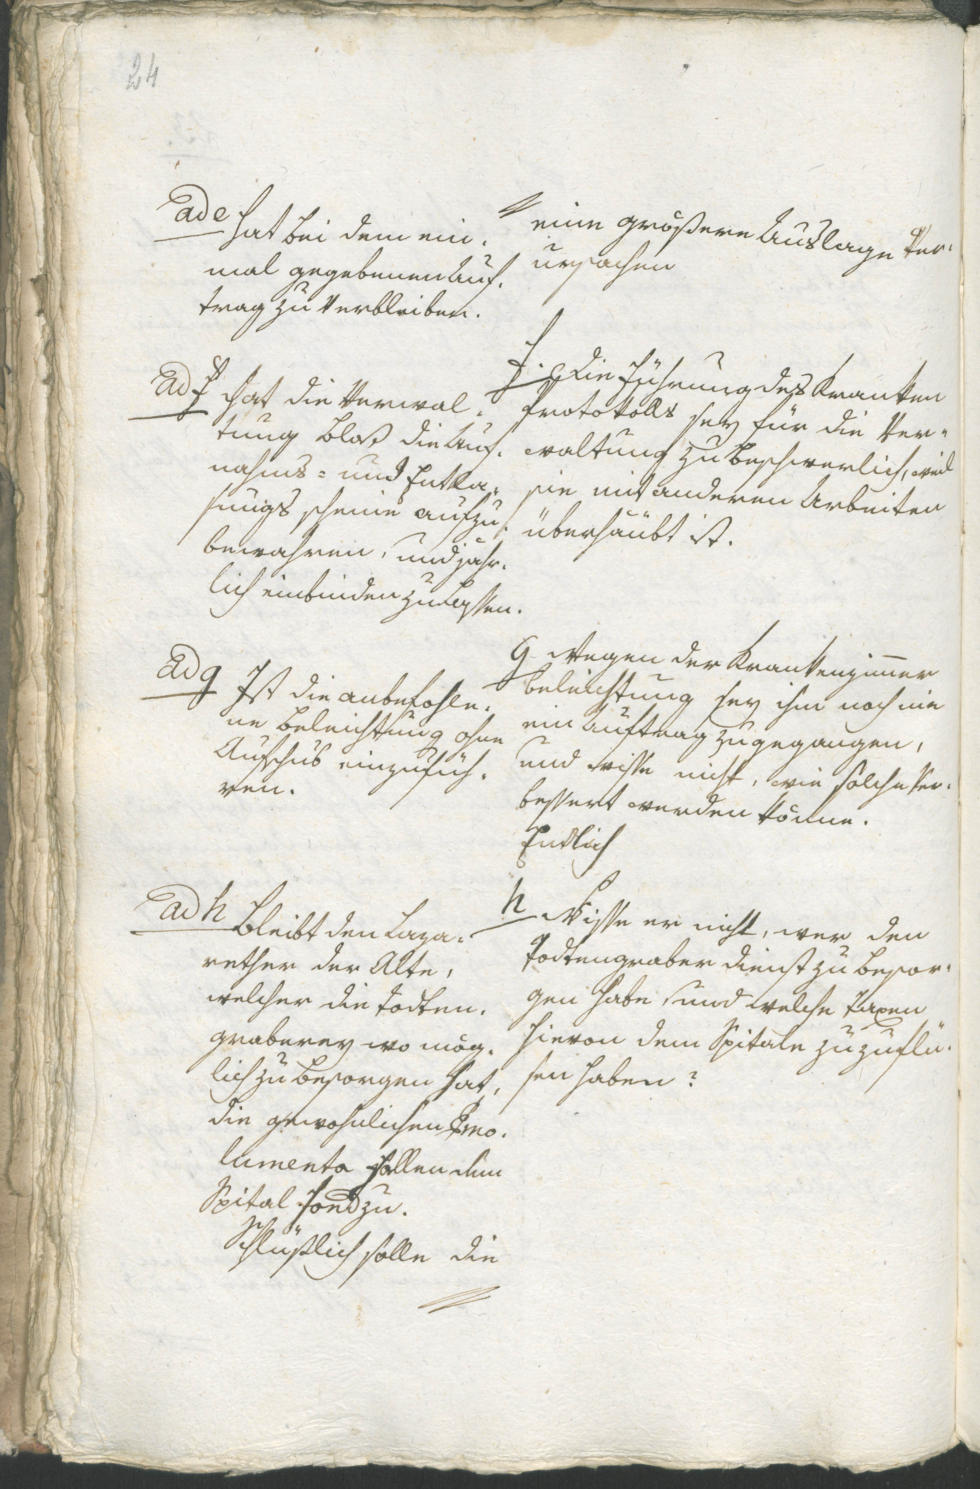 24
ad e hat bei dem ein-
mal gegebenen Auf-
trag zu verbleiben.
ad f hat die Verwal-
tung bloß die Auf-
nahms- und Entla-
sungs scheine aufzu-
bewahren, und jähr-
lich einbinden zu lassen.
ad g Ist die anbefohle-
ne beleichtung ohne
Aufschub einzufüh-
ren.
ad h bleibt den Laza-
rether der Alte,
welcher die Todten-
graberey wo mög-
lich zu besorgen hat,
die gewohnlichen Emo-
lumenta fallen dem
Spital Fond zu.
Schlüßlich solle die
eine größere Auslage ver-
ursachen
f. Die Führung des Kranken
Protokolls sey für die Ver-
waltung zu beschwerlich, weil
sie mit anderen Arbeiten
überhäubt ist.
g Wegen der Krankenzimmer
beleichtung sey ihm noch nie
ein Auftrag zugegangen,
und wisse nicht, wie solche ver-
bessert werden könne.
Endlich
h Wisse er nicht, wer den
Todtengraber dienst zu besor-
gen habe, und welche Taxen
hievon dem Spitale zuzuflü-
sen haben?